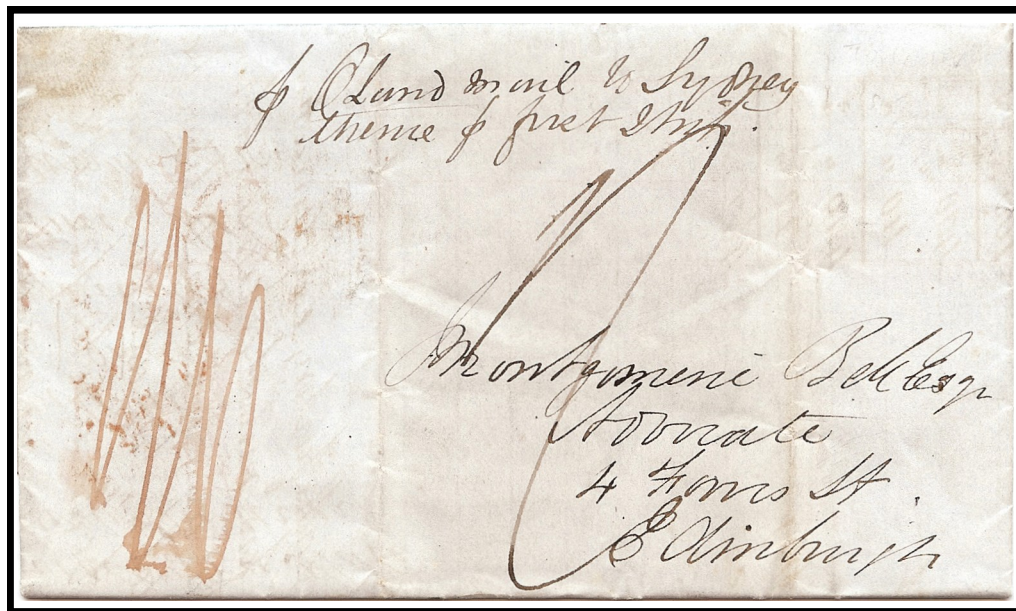 p Oland mail to Sydney
thence p first Ship.
Montgomerie Bell Esqr
Advocate
4 Forres St.
Edinburgh